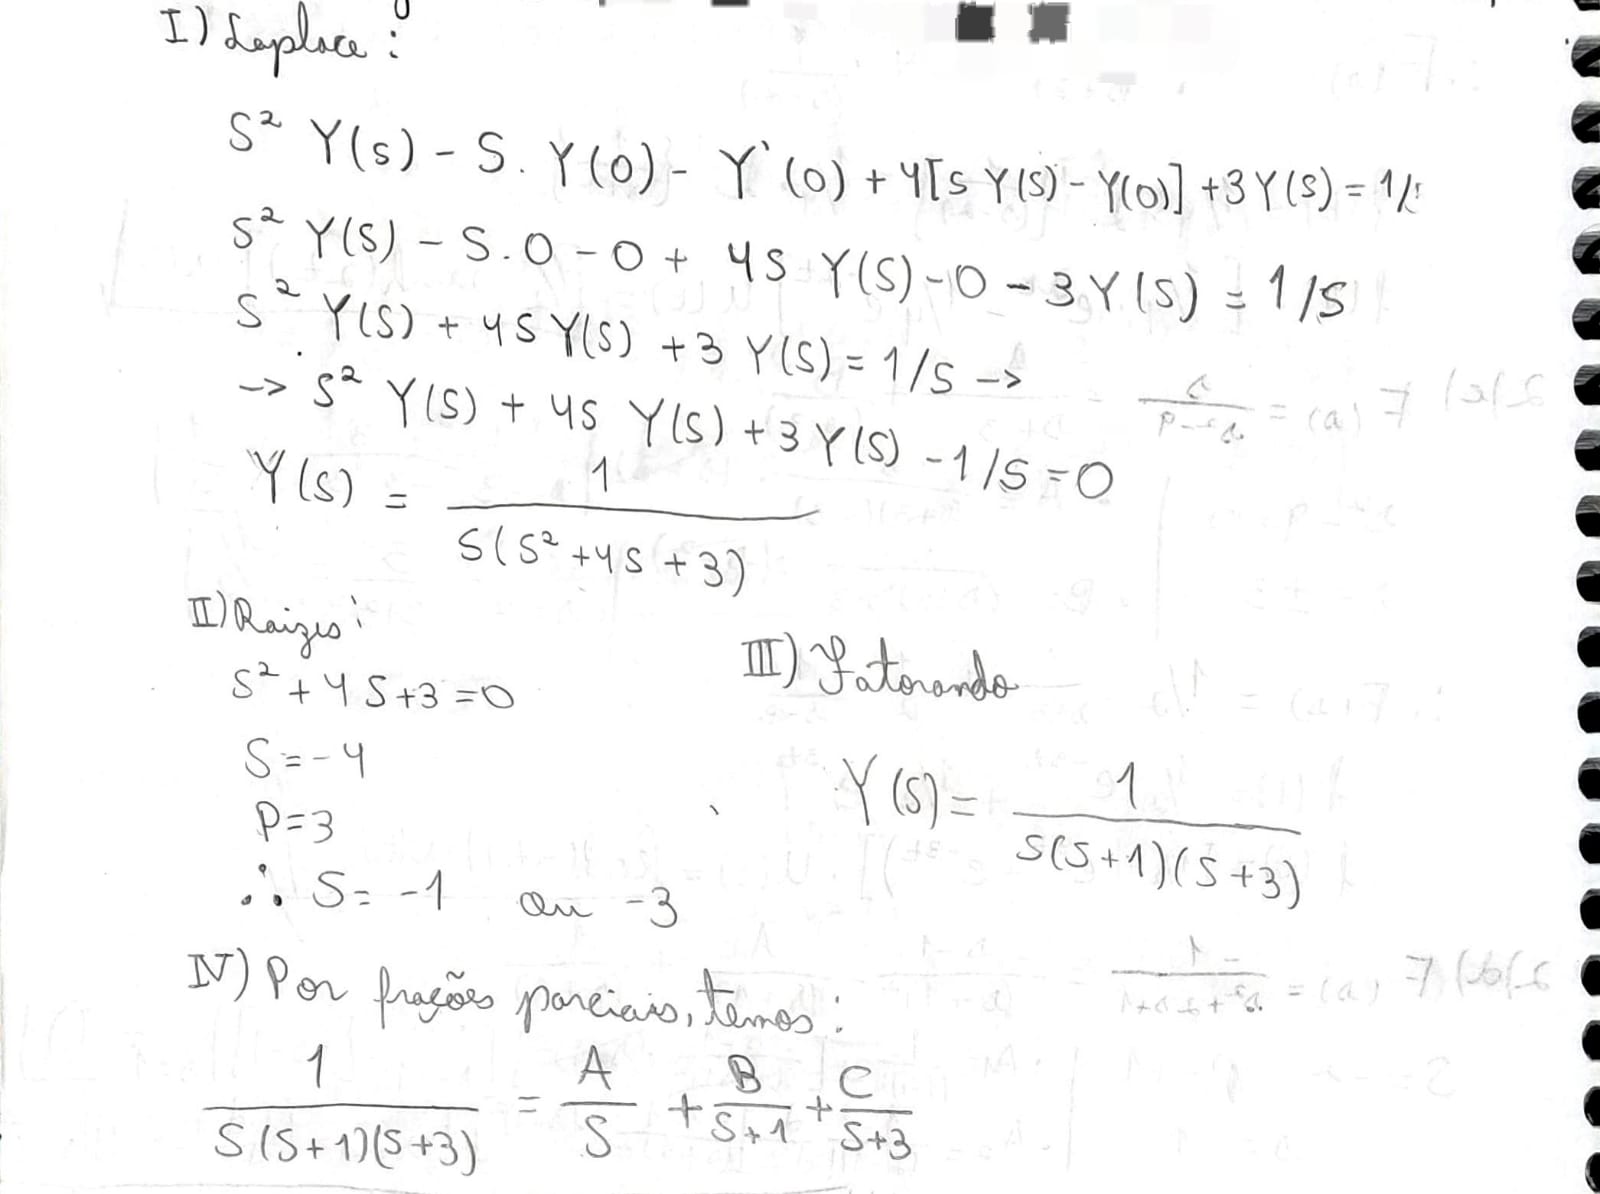 I) Laplace:
S² Y(s) - S. Y(0) - Y'(0) + 4[s Y(s) - Y(0)] + 3Y(s) = 1/
S² Y(S) - S.0 - 0 + 4S Y(S) - 0 - 3Y(S) = 1/S
S² Y(S) + 4S Y(S) + 3 Y(S) = 1/S ->
-> S² Y(S) + 4S Y(S) + 3Y(S) - 1/S = 0
Y(S) = 1
S(S² + 4S + 3)
II) Raizes:
S² + 4S + 3 = 0
S = -4
P = 3
∴ S = -1 ou -3
III) Fatorando
Y(S) = 1
S(S+1)(S+3)
IV) Por frações parciais, temos:
1 = A + B + C
S(S+1)(S+3) S S+1 S+3